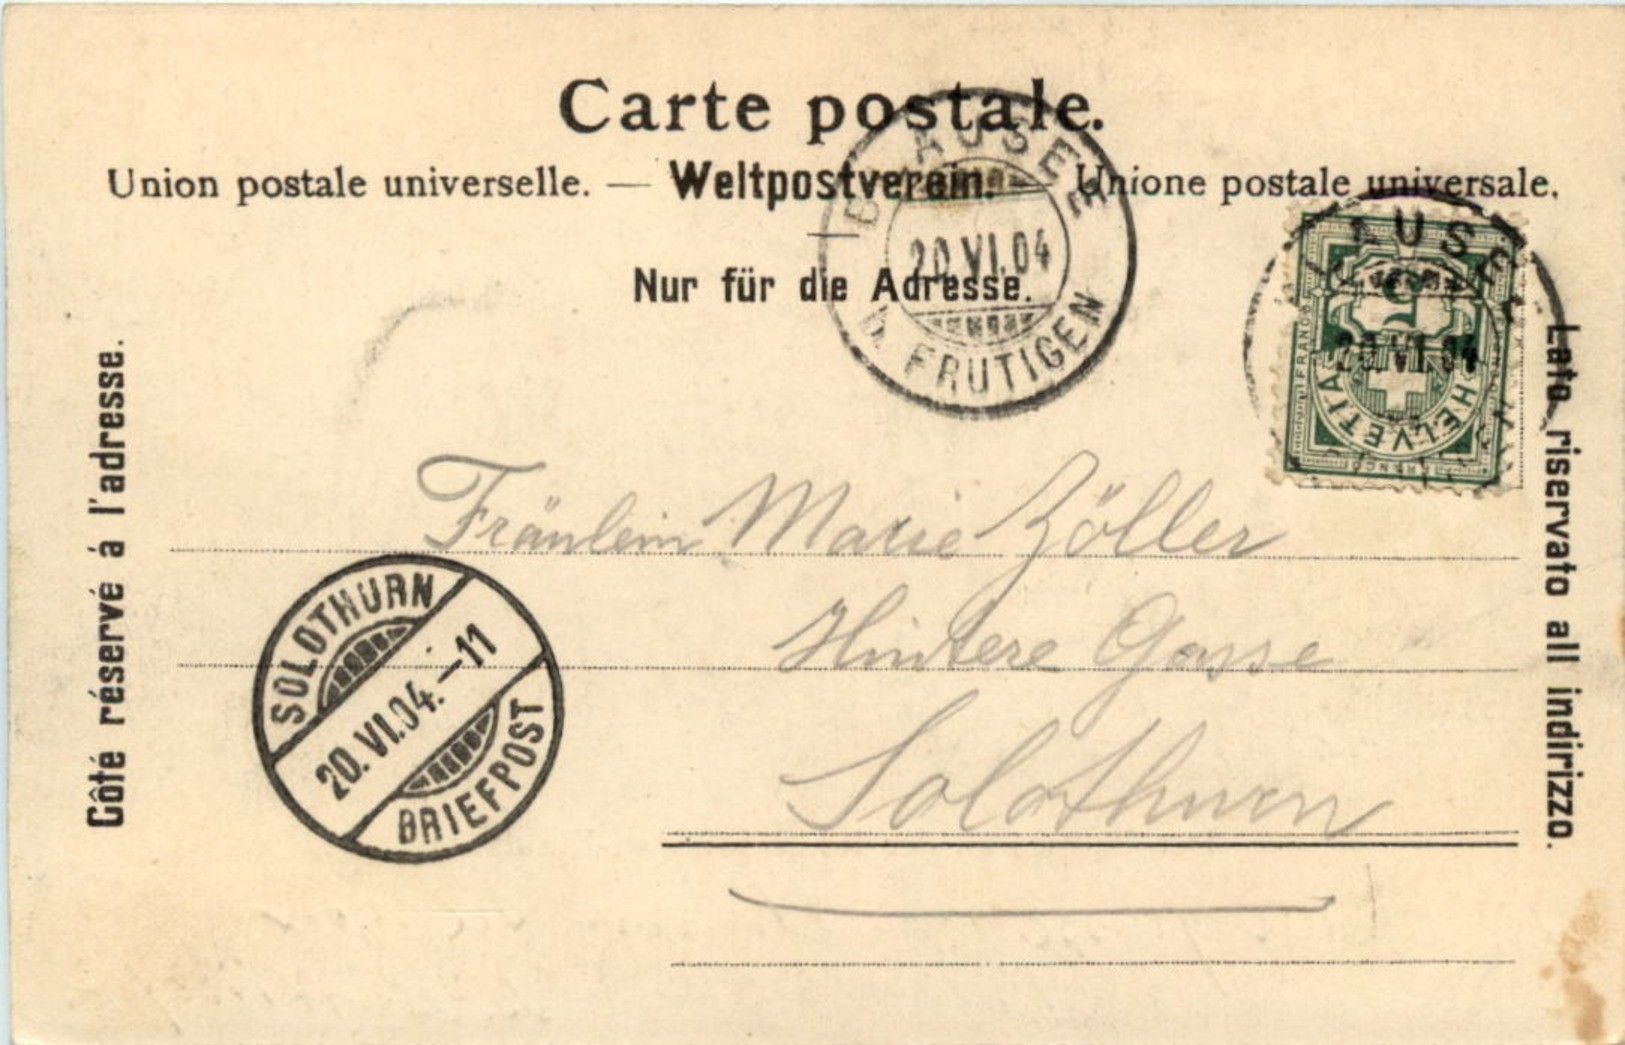 Carte postale.
Union postale universelle. — Weltpostverein. — Unione postale universale.
Nur für die Adresse.
Côté réservé á l'adresse.
Lato riservato all indirizzo.
BLAUSEE
20.VI.04
b. FRUTIGEN
AUSEE
20.VI.04
FRANCO
5
HELVETIA
Fräulein Marie Zöller
Hintere Gasse
Solothurn
SOLOTHURN
20.VI.04.-11
BRIEFPOST